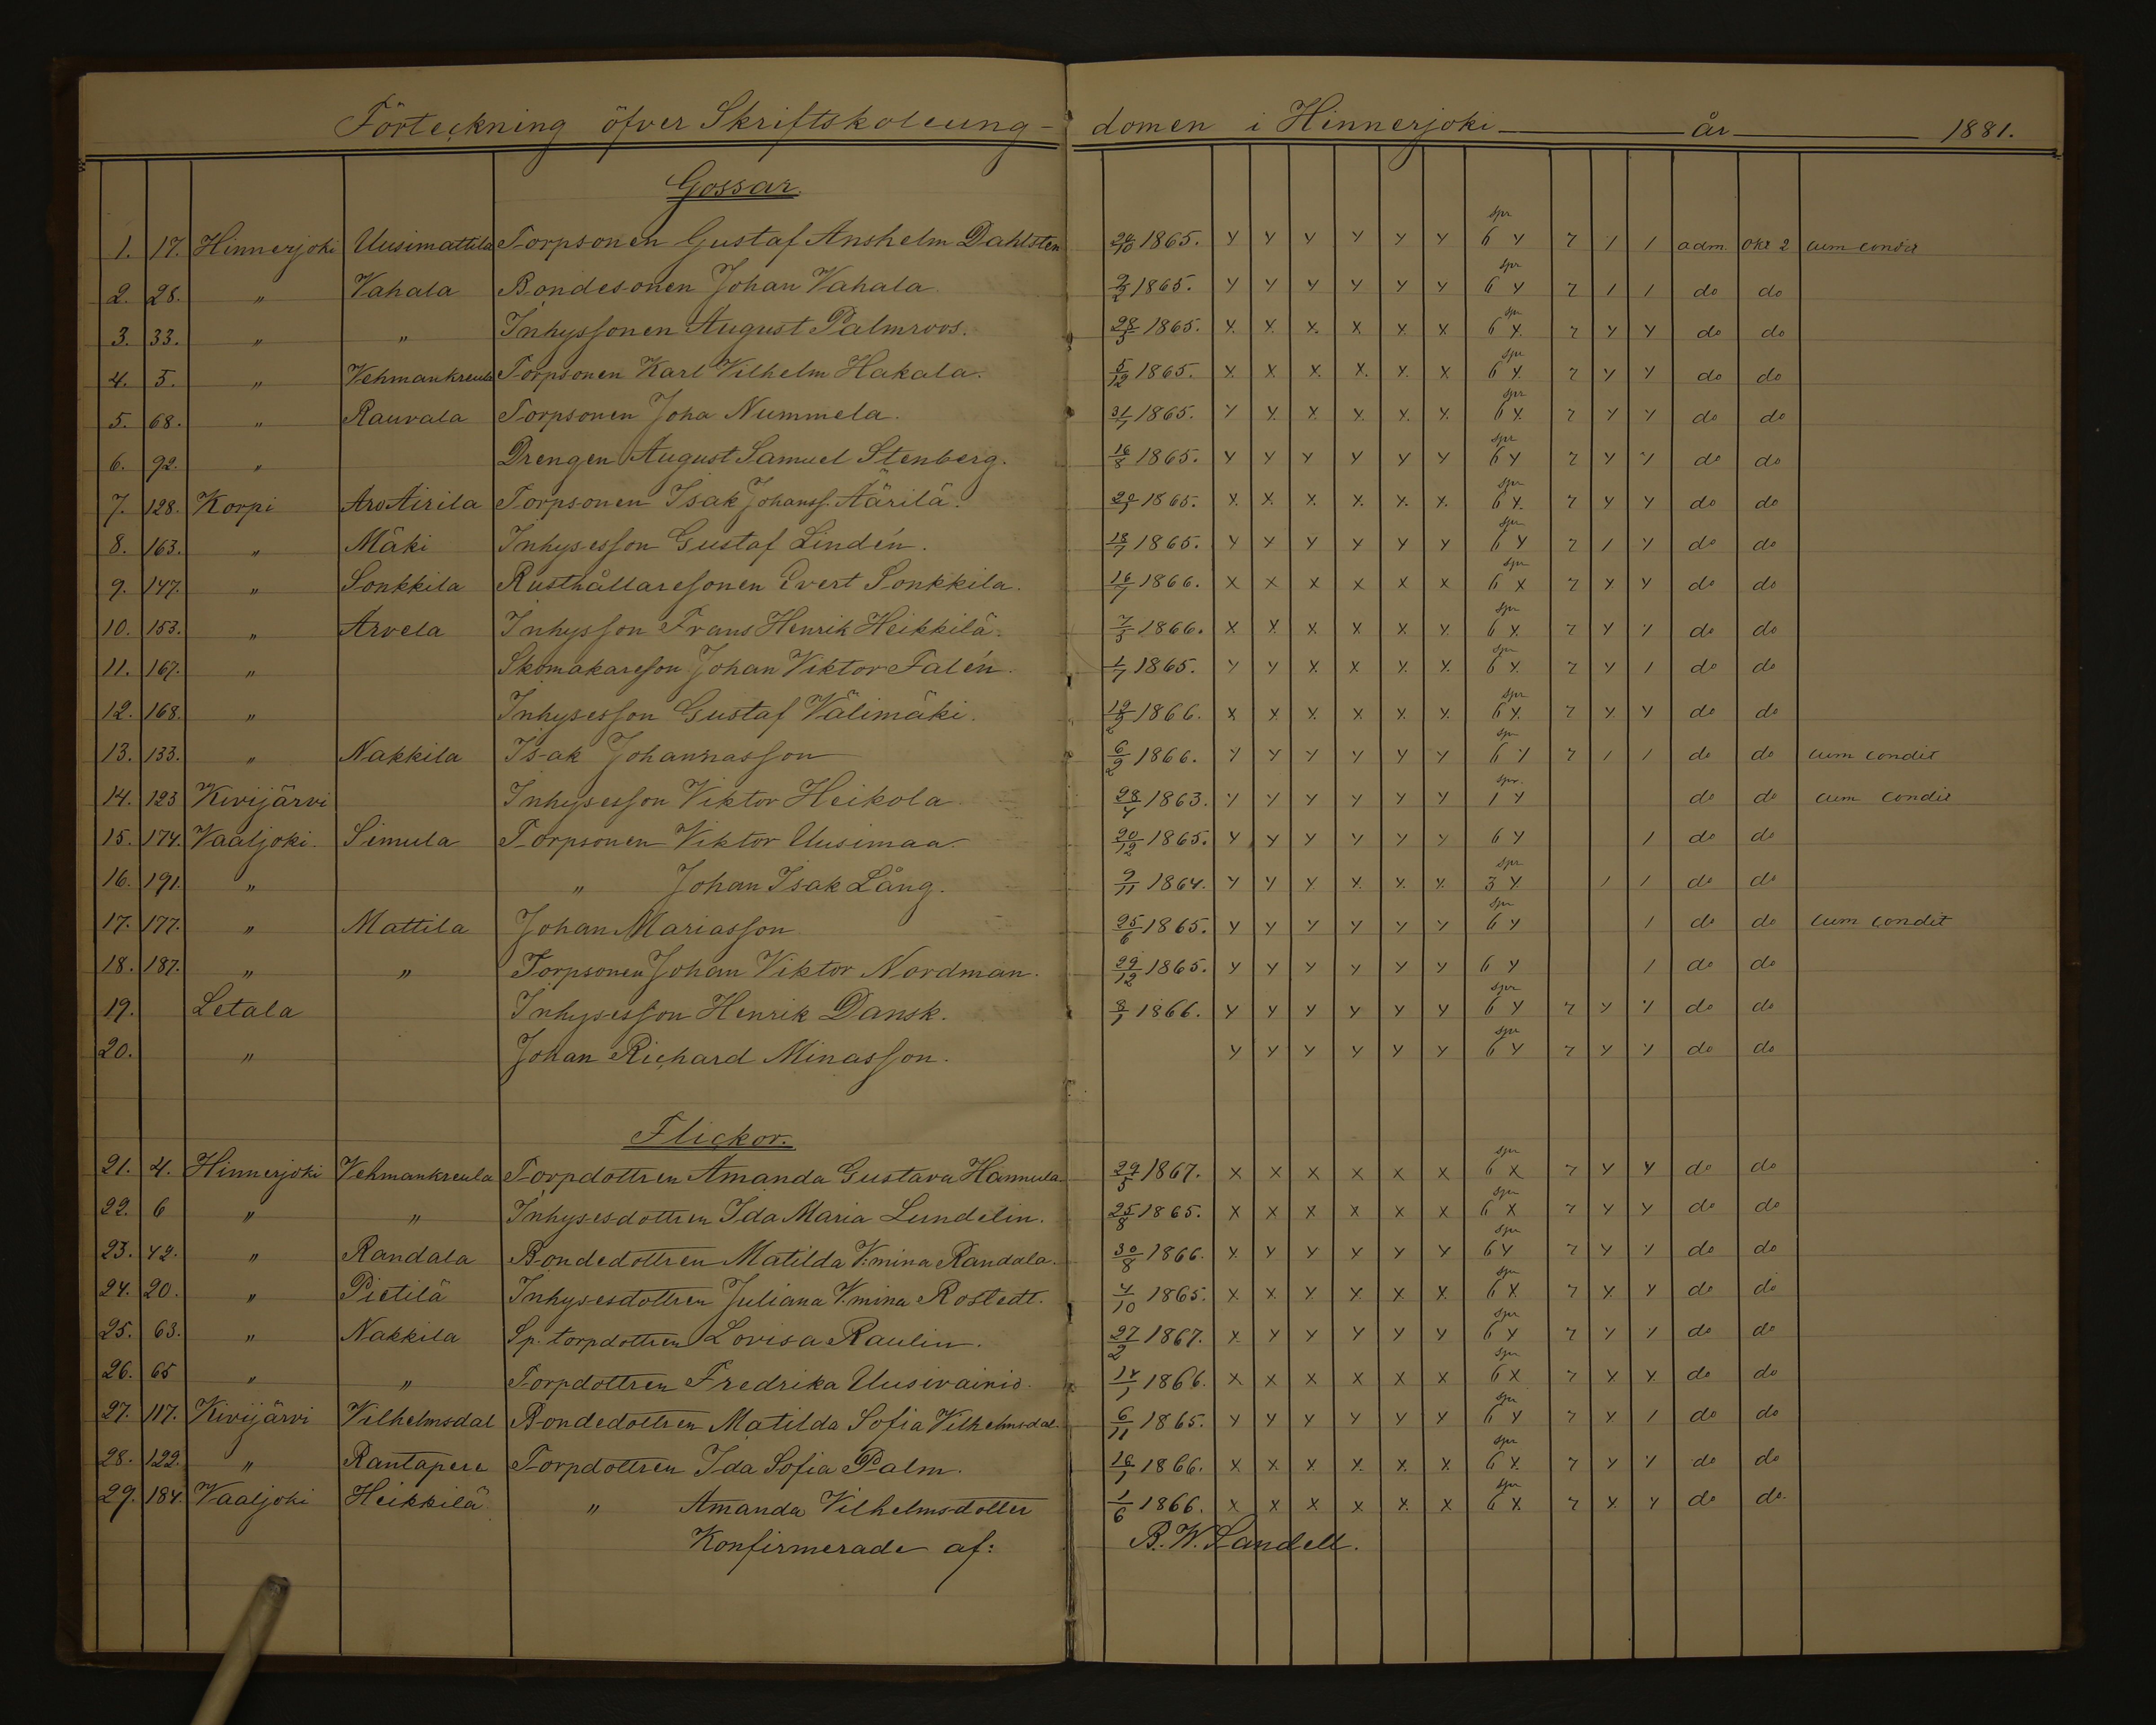 Förteckning öfver Skriftskoleung- domen i Hinnerjoki år 1881.
Gossar.
1. 17. Hinnerjoki Uusimattila Torpsonen Gustaf Anshelm Dahlsten 1865. y y y y y y spr 6 y 7 1 1 adm. okt 2 cum condit
2. 28. " Vahala Bondesonen Johan Vahala 1865. y y y y y y spr 6 y 7 1 1 do do
3. 33. " " Inhyssonen August Palmroos. 28/3 1865. x x x x x x spr 6 x 7 y y do do
4. 5. " Vehmankreula Torpsonen Karl Vilhelm Hakala. 5/12 1865. x x x x x x spr 6 x 7 y y do do
5. 68. " Rauvala Torpsonen Joha Nummela. 31/1 1865. y x x x x x spr 6 x 7 y y do do
6. 92. " Drengen August Samuel Stenberg. 16/8 1865. y y y y y y spr 6 y 7 y y do do
7. 128. Korpi Aro Airila Torpsonen Isak Johanss. Äärilä. 1865. x x x x x x spr 6 x 7 y y do do
8. 163. " Mäki Inhysesson Gustaf Lindén. 18/7 1865. y y y y y y spr 6 y 7 1 y do do
9. 147. " Sonkkila Rusthållaresonen Evert Sonkkila. 16/7 1866. x x x x x x spr 6 x 7 y y do do
10. 153. " Arvela Inhysson Frans Henrik Heikkilä. 7/5 1866. x x x x x x spr 6 x 7 y y do do
11. 167. " Skomakareson Johan Viktor Falén. 1/7 1865. y y x x x x spr 6 x 7 y 1 do do
12. 168. " Inhysesson Gustaf Välimäki. 12/2 1866. x x x x x x spr 6 x 7 y y do do
13. 133. " Nakkila Isak Johannasson 6/2 1866. y y y y y y spr 6 y 7 1 1 do do cum condit
14. 123 Kivijärvi Inhysesson Viktor Heikola 28/4 1863. y y y y y y spr. 1 y do do cum condit
15. 174. Vaaljoki. Simula Torpsonen Viktor Uusimaa 20/12 1865. y y y y y y 6 y 1 do do
16. 191. " " Johan Isak Lång. 9/11 1864. y y x x x x spr 3 y 1 1 do do
17. 177. " Mattila Johan Mariasson 25/6 1865. y y y y y y spr 6 y 1 do do cum condit
18. 187. " " Torpsonen Johan Viktor Nordman. 29/12 1865. y y y y y y 6 y 1 do do
19. Letala Inhysesson Henrik Dansk. 8/1 1866. y y y y y y spr 6 y 7 y y do do
20. " Johan Richard Minasson. y y y y y y spr 6 y 7 y y do do
Flickor.
21. 4. Hinnerjoki Vehmankreula Torpdottren Amanda Gustava Hannula 29/5 1867. x x x x x x spr 6 x 7 y y do do
22. 6 " " Inhysesdottren Ida Maria Lundelin. 25/8 1865. x x x x x x spr 6 x 7 y y do do
23. 42. " Randala Bondedottren Matilda V:mina Randala. 30/8 1866. x y y y y y spr 6 y 7 y y do do
24. 20. " Pietilä Inhysesdottren Juliana V:mina Rostedt. 4/10 1865. x x x x x x spr 6 x 7 x y do do
25. 63. " Nakkila Sp. torpdottren Lovisa Raulin. 27/2 1867. x y y y y y spr 6 y 7 y y do do
26. 65 " " Torpdottren Fredrika Uusivainio. 14/1 1866. x x x x x x spr 6 x 7 x x do do
27. 117. Kivijärvi Vilhelmsdal Bondedottren Matilda Sofia Vilhelmsdal. 6/11 1865. y y y y y y spr 6 y 7 y 1 do do
28. 122. " Rantapere Torpdottren Ida Sofia Palm. 16/1 1866. x x x x x x spr 6 x 7 y y do do
29. 184. Vaaljoki Heikkilä " Amanda Vilhelmsdotter 1/6 1866. x x x x x x spr 6 x 7 x y do do.
Konfirmerade af: B. W. Landell.